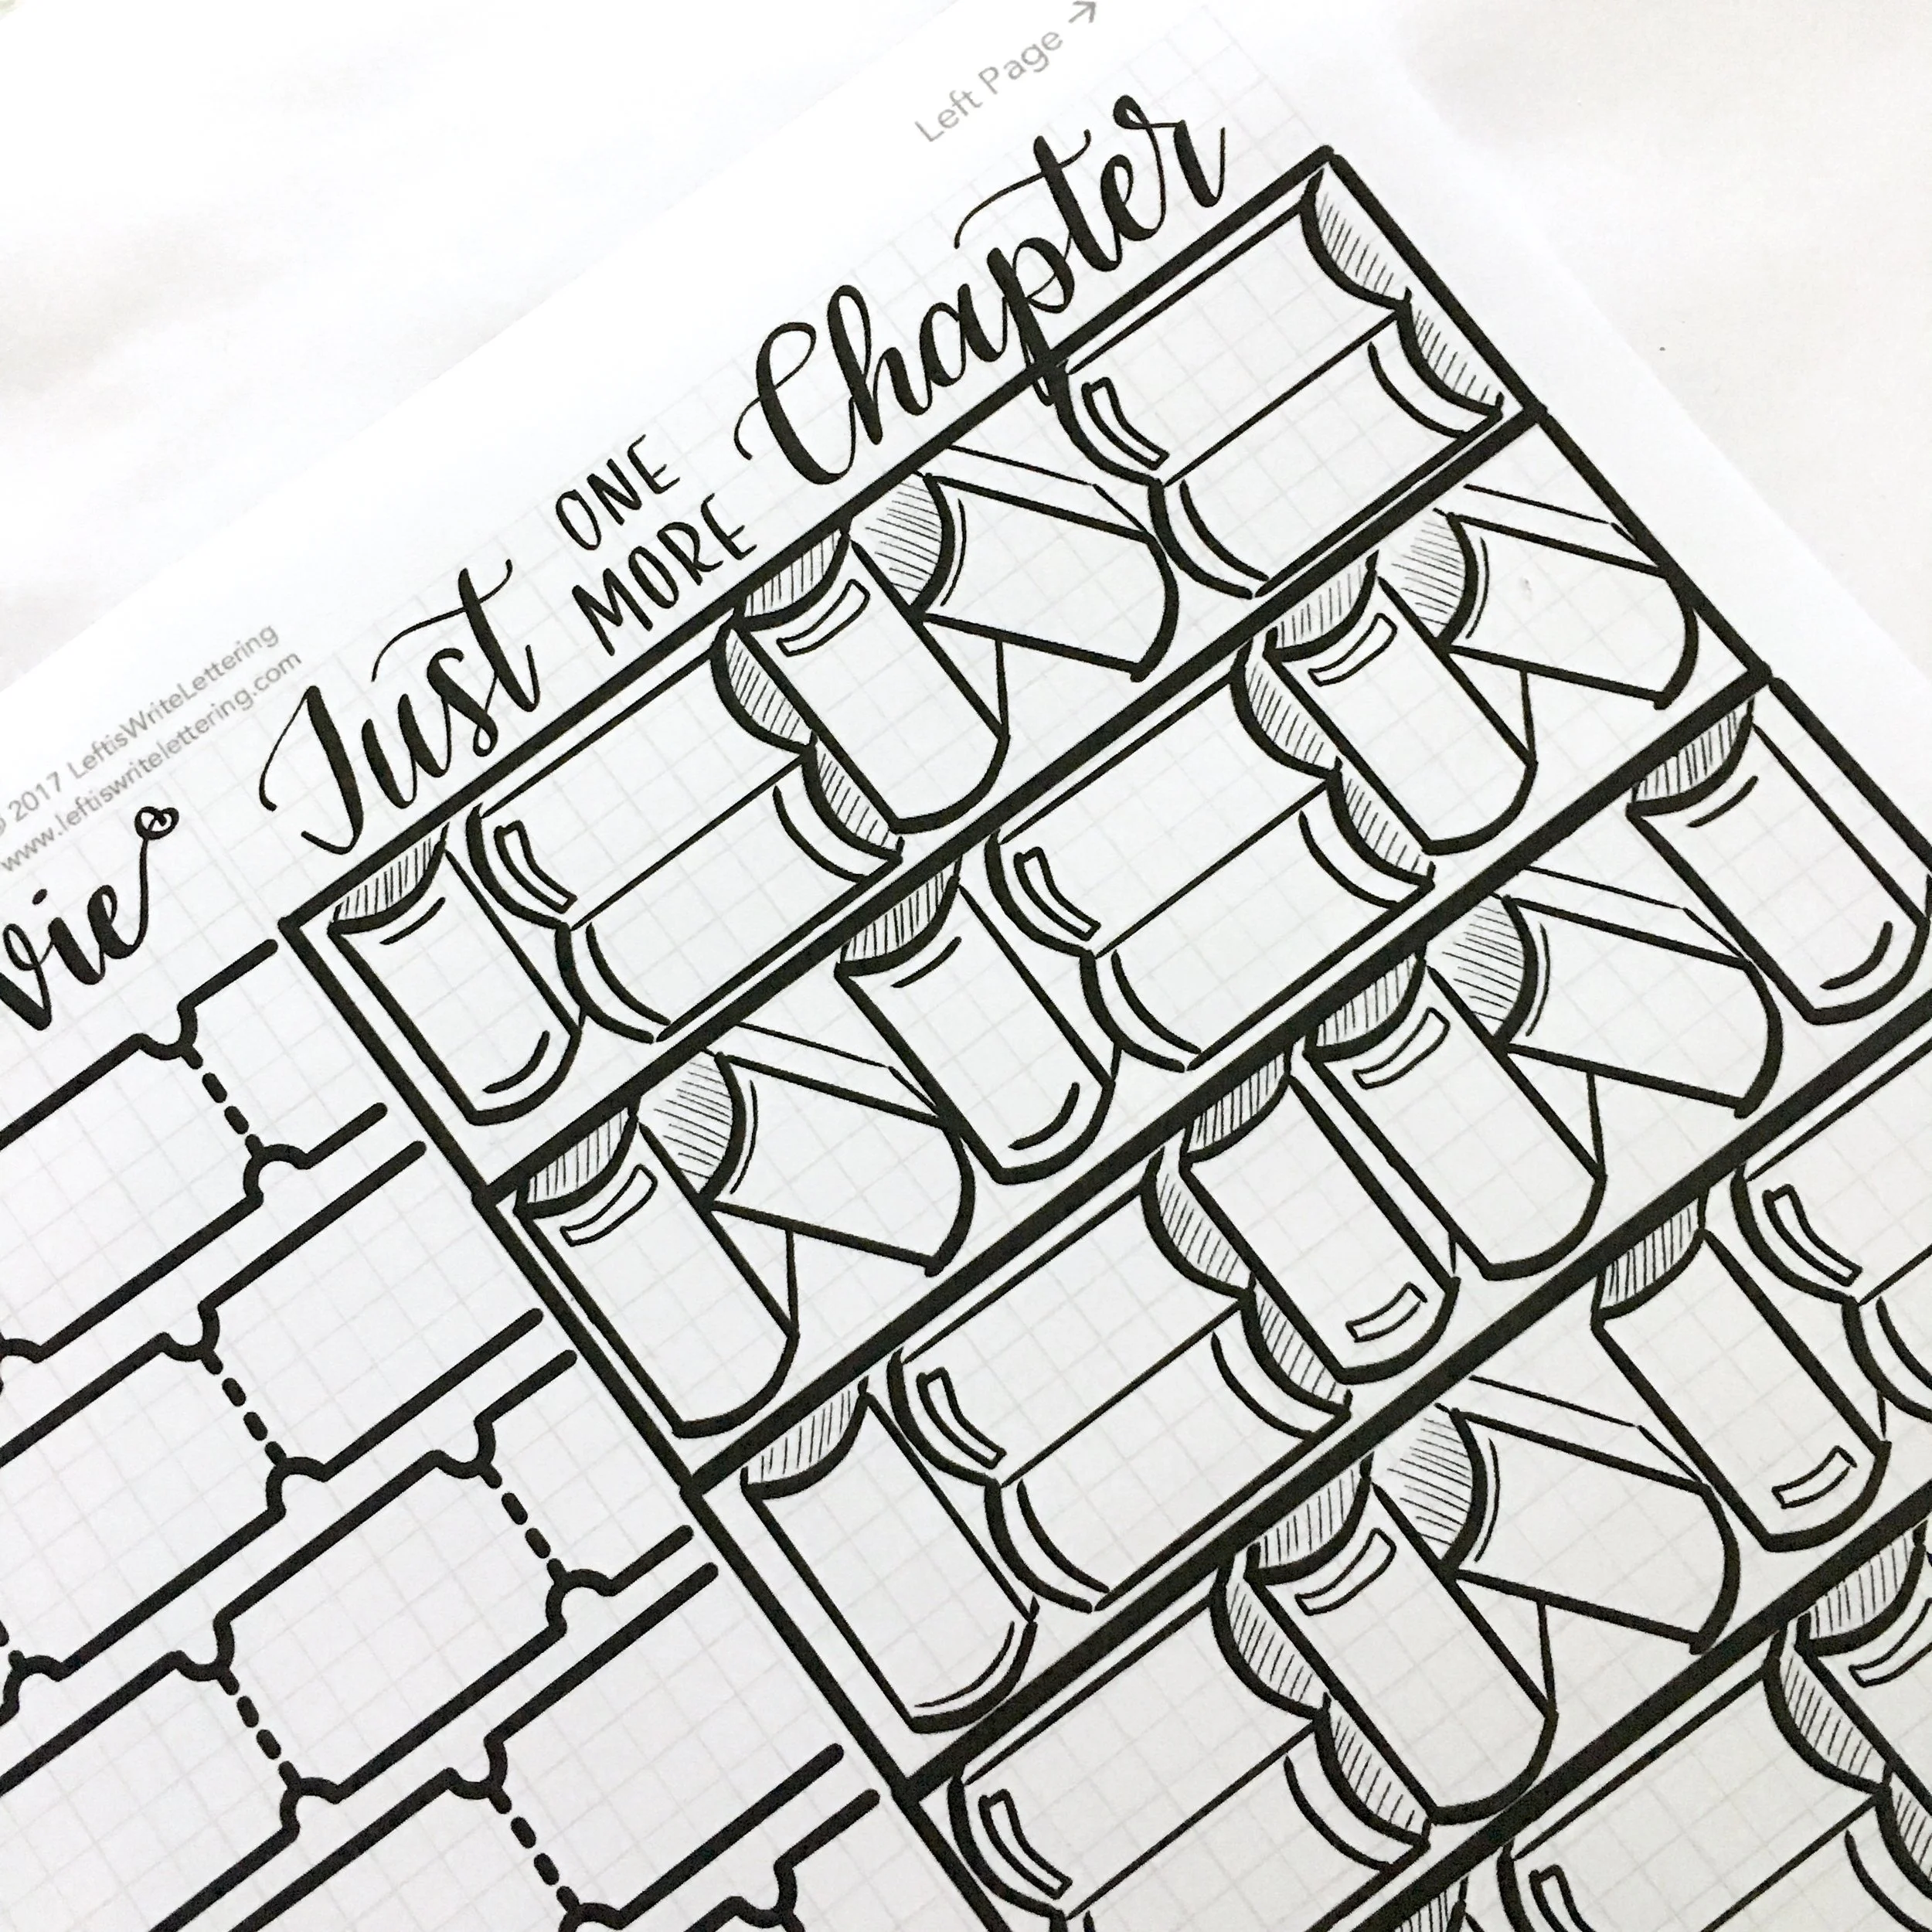 Left Page →
Just ONE MORE Chapter
© 2017 LeftisWriteLettering
www.leftiswritelettering.com
vie